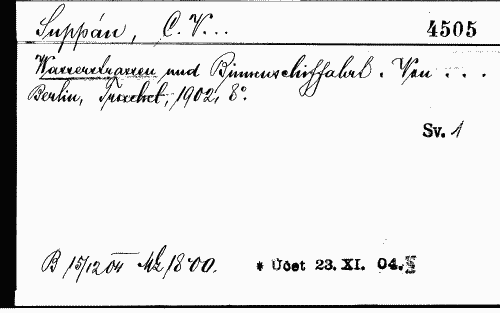 Suppán, C. V... 4505
Wasserstrassen und Binnenschiffahrt. Von . . .
Berlin, Troschel, 1902, 8°.
Sv. 1
B 15/12 04 Mk 18·00. * Účet 23. XI. 04.